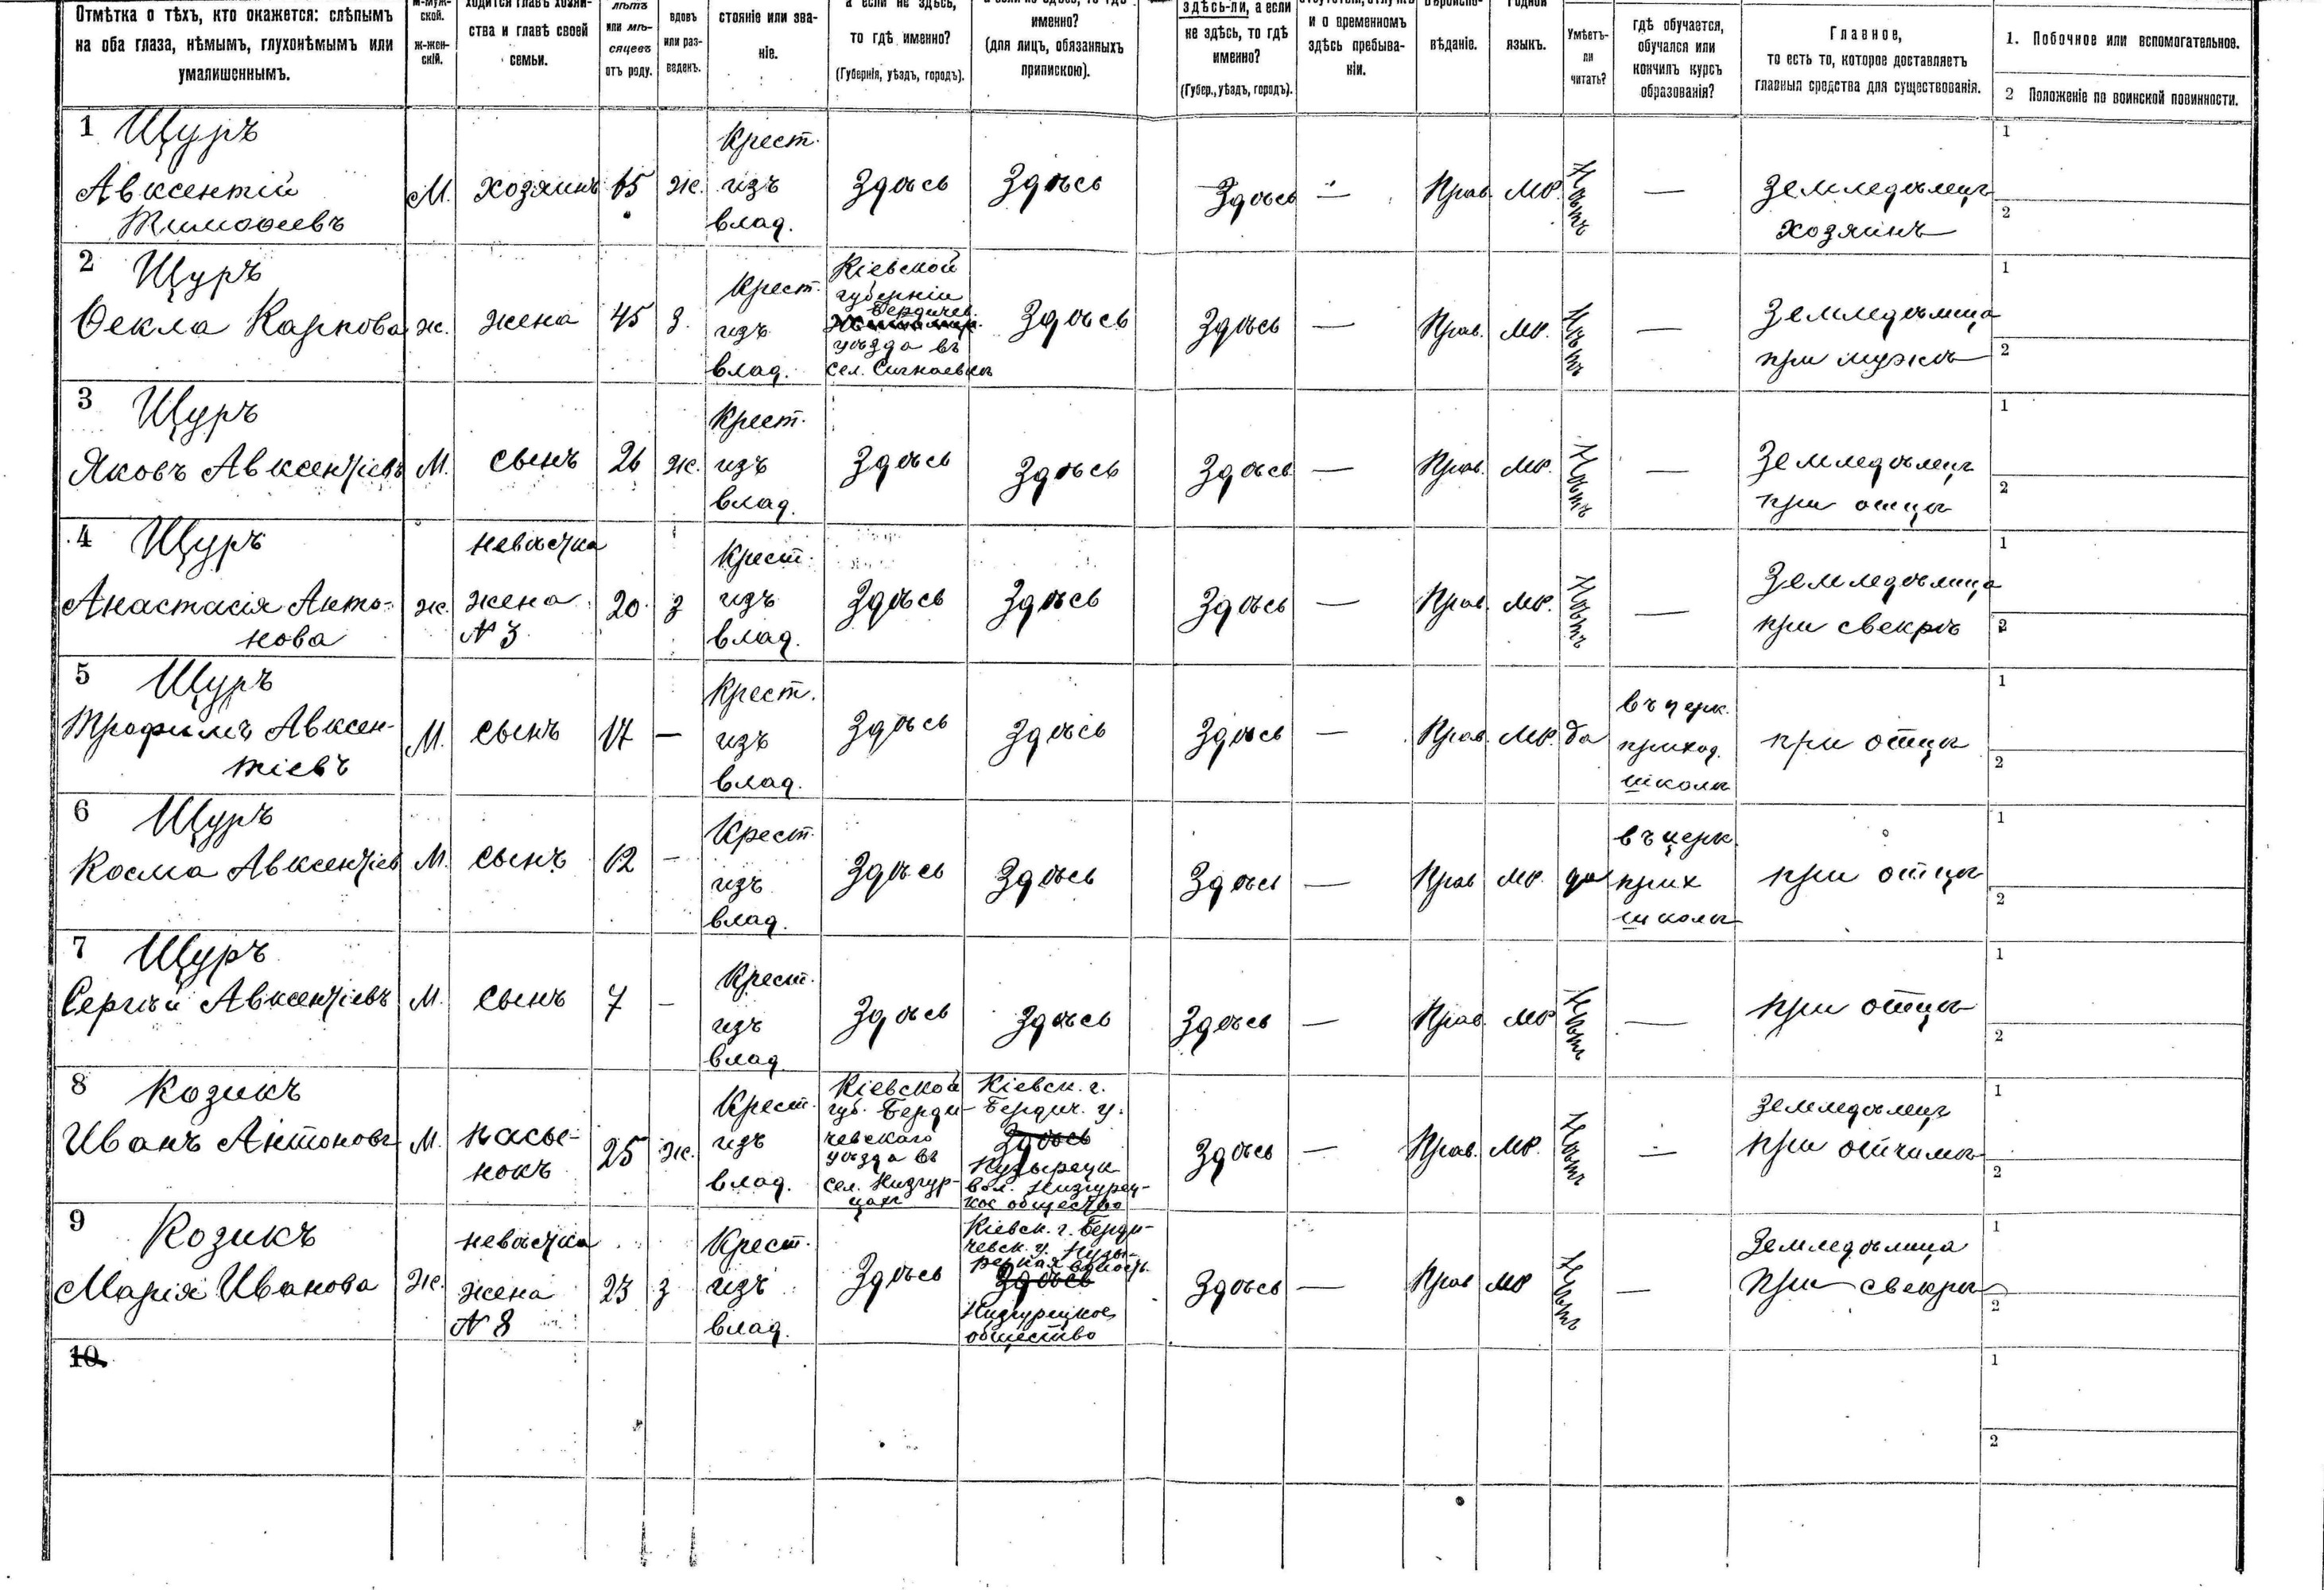 Отмѣтка о тѣхъ, кто окажется: слѣпымъ
на оба глаза, нѣмымъ, глухонѣмымъ или
умалишеннымъ.
м-муж-
ской.
ж-жен-
скій.
ходится главѣ хозяй-
ства и главѣ своей
семьи.
лѣтъ
или мѣ-
сяцевъ
отъ роду.
вдовъ
или раз-
веденъ.
стояніе или зва-
ніе.
а если не здѣсь,
то гдѣ именно?
(Губернія, уѣздъ, городъ).
именно?
(для лицъ, обязанныхъ
припискою).
здѣсь-ли, а если
не здѣсь, то гдѣ
именно?
(Губер., уѣздъ, городъ).
и о временномъ
здѣсь пребыва-
ніи.
Вѣроиспо-
вѣданіе.
Родной
языкъ.
Умѣетъ-
ли
читать?
гдѣ обучается,
обучался или
кончилъ курсъ
образованія?
Главное,
то есть то, которое доставляетъ
главныя средства для существованія.
1. Побочное или вспомогательное.
2 Положеніе по воинской повинности.
1 Щуръ
Авксентій
Тимофеевъ
М.
хозяинъ
ж.
Крест.
изъ
влад.
Здѣсь
Здѣсь
Здѣсь
—
Прав.
Мр.
Нѣтъ
—
Земледѣлецъ
хозяинъ
1
2
2 Щуръ
Ѳекла Карпова
ж.
жена
45
з.
Крест.
изъ
влад.
Кіевской
губерніи
Бердичев.
уѣзда въ
сел.
Здѣсь
Здѣсь
—
Прав.
Мр.
Нѣтъ
—
Земледѣлица
при мужѣ
1
2
3 Щуръ
Яковъ Авксентіевъ
М.
сынъ
26
ж.
Крест.
изъ
влад.
Здѣсь
Здѣсь
Здѣсь
—
Прав.
Мр.
Нѣтъ
—
Земледѣлецъ
при отцѣ
1
2
4 Щуръ
Анастасія Анто-
нова
ж.
невѣстка
жена
№ 3
20
з
Крест.
изъ
влад.
Здѣсь
Здѣсь
Здѣсь
—
Прав.
Мр.
Нѣтъ
—
Земледѣлица
при свекрѣ
1
2
5 Щуръ
Трофимъ Авксен-
тіевъ
М.
сынъ
17
—
Крест.
изъ
влад.
Здѣсь
Здѣсь
Здѣсь
—
Прав.
Мр.
да
въ церк.
приход.
школѣ
при отцѣ
1
2
6 Щуръ
Косма Авксентіев
М.
сынъ
12
—
Крест.
изъ
влад.
Здѣсь
Здѣсь
Здѣсь
—
Прав
Мр.
да
въ церк.
прих
школѣ
при отцѣ
1
2
7 Щуръ
Сергѣй Авксентіевъ
М.
сынъ
7
—
Крест.
изъ
влад
Здѣсь
Здѣсь
Здѣсь
—
Прав.
Мр
Нѣтъ
—
при отцѣ
1
2
8 Козикъ
Иванъ Антоновъ
М.
пасы-
нокъ
25
ж.
Крест.
изъ
влад.
Кіевской
губ. Берди-
чевскаго
уѣзда въ
сел. Низгур-
цахъ
Кіевск. г.
Бердич. у.
Здѣсь
Пузырецк
вол. Низгурец-
кое общество
Здѣсь
—
Прав.
Мр.
Нѣтъ
—
Земледѣлецъ
при отчимѣ
1
2
9 Козикъ
Марія Иванова
ж.
невѣстка
жена
№ 8
23
з
Крест.
изъ
влад.
Здѣсь
Кіевск. г. Берди-
чевск. у. Пузы-
рецкая волость
Здѣсь
Низгурецкое
общество
Здѣсь
—
Прав
Мр
Нѣтъ
—
Земледѣлица
при свекрѣ
1
2
10.
1
2